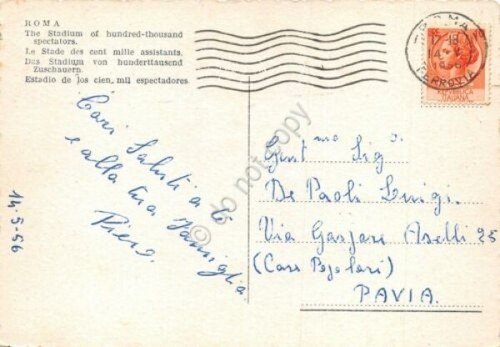 ROMA
The Stadium of hundred-thousand
spectators.
Le Stade des cent mille assistants.
Das Stadium von hunderttausend
Zuschauern.
Estadio de los cien, mil espectadores
Cari Saluti a te
e alla tua famiglia
Piero.
14-5-56
ROMA
FERROVIA
REPUBBLICA
ITALIANA
Gent.mo Sig.
De Paoli Luigi
Via Gaspare Aselli 25
(Case Popolari)
PAVIA.
do not copy